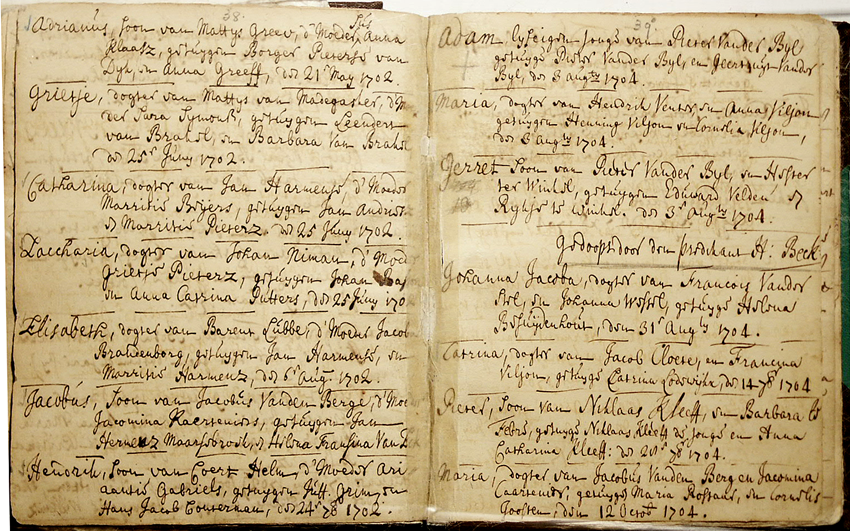 38.
Adrianus, Soon van Mattys Greev, d'Moeder Anna
Klaasz, getuygen Borger Pieterse van
Dyk, en Anna Greeff, den 21 May 1702.
Grietje, dogter van Mattys van Madegascher, d'Moe
der Sara Symons, getuygen Leendert
van Brahel, en Barbara van Brahel
de 25e Juny 1702.
Catharina, dogter van Jan Harmense, d'Moeder
Marritie Beyers, getuygen Jan Andriesz
en Marritie Pieterz. de 25 Juny 1702.
Zaccharia, dogter van Johan Niman, d'Moed
Grietje Pieterz, getuygen Johan
en Anna Catrina Putters, den 25 Juny 170
Elisabeth, dogter van Barent Lubbe, d'Moeder Jacob
Brandenborg, getuygen Jan Harmense, en
Marritie Harmenz, den 6e Aug. 1702.
Jacobus, Soon van Jacobus Vanden Berge, d'Moe
Jacomina Kaerteniers, getuygen Jan
Hermenz Maarsebroek, en Helena Fransina Van
Hendrik, Soon van Coert Helm, d'Moeder Ari
aantie Gabriels, getuygen Jurr. Grim, en
Hans Jacob Conterman, den 24e 7b 1702.
39
Adam, lyfeigen jonge van Pieter Vander Byl
getuyge Pieter Vander Byl, en Geertruyt Vander
Byl, den 3 augus 1704.
Maria, dogter van Hendrik Venter, en Anna Viljon
getuygen Henning Viljon en Cornelia Viljon,
den 3 Augus 1704.
Gerret Soon van Pieter Vander Byl, en Hester
ter Winkel, getuygen Eduward Velden en
Rykje te Winkel. den 3e Augus 1704.
Gedoopt door den predikant H: Beck
Johanna Jacoba, dogter van Francois Vander
Stel, en Johanna Wessel, getuyge Helena
Besuydenhout, den 31e Augus 1704.
Catrina, dogter van Jacob Cloete, en Francina
Viljon, getuyge Catrina Lodewijkx, den 14 7b 1704
Pieter, Soon van Niklaas Kleeff, en Barbara le
Febre, getuyge Niklaas Kleeff de Jonge en Anna
Catharina Kleeff: den 28e 7b 1704.
Maria, dogter van Jacobus Vanden Berg en Jacomina
Caartenier; getuyge Maria Rostaus, en Cornelis
Joosten, den 12 Octob 1704.